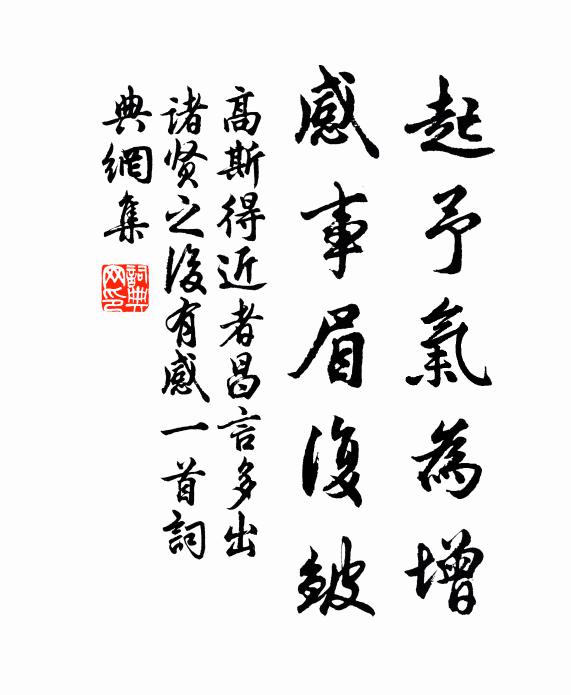 起予氣為增
感事眉復皴
高斯得近者昌言多出
諸贤之後有感一首詞
典網集
詞典网印